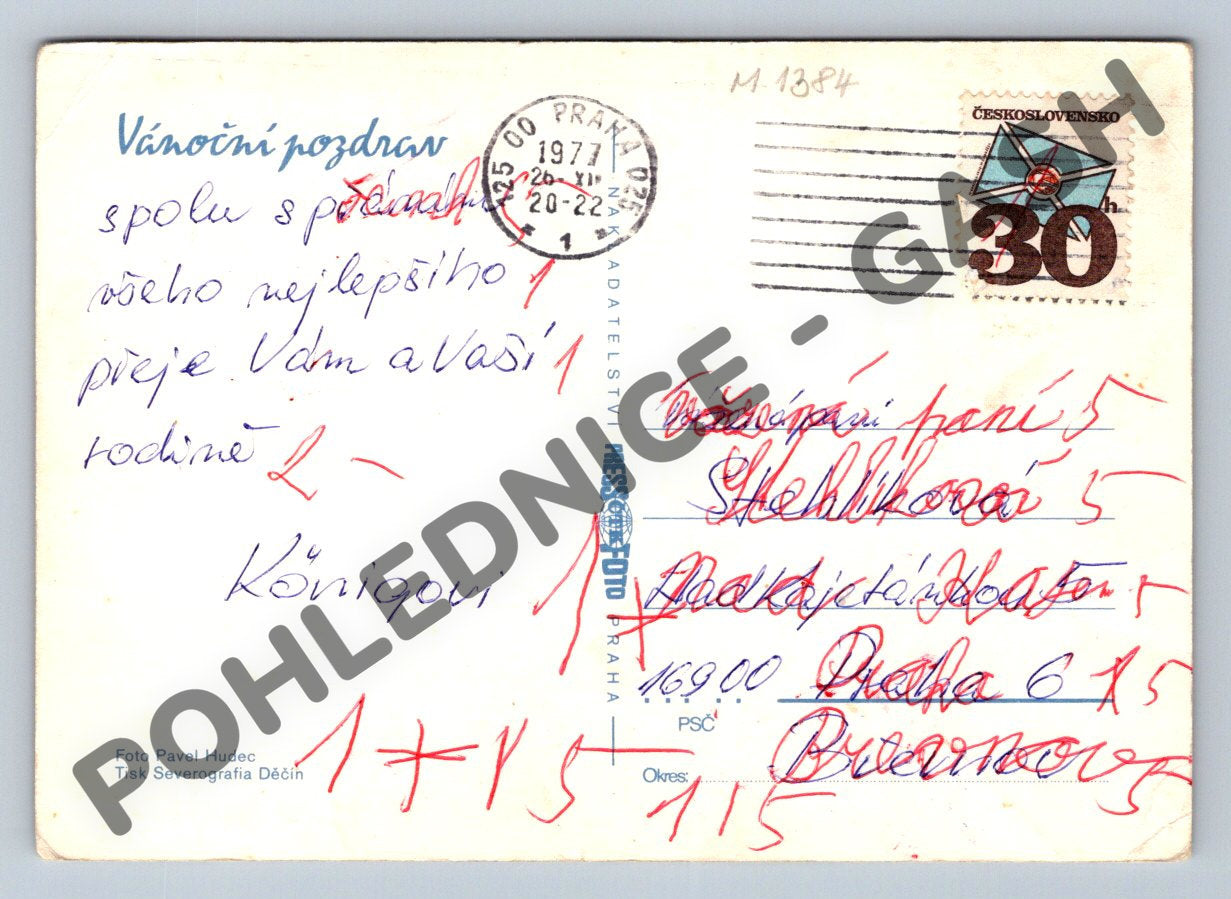 M.1384
Vánoční pozdrav
spolu s
všeho nejlepšího 1
přeje Vám a Vaší 1
rodině 2 -
Königovi
125 00 PRAHA 025
1977
20-22
1
ČESKOSLOVENSKO
30h
NAKLADATELSTVÍ PRESSFOTO PRAHA
paní 5
Stehlíková 5
5
169 00 Praha 6 x 5
PSČ
Břevnov 5
Okres:
1 + 1 5
1 1 5
Foto Pavel Hudec
Tisk Severografia Děčín
POHLEDNICE - GASH